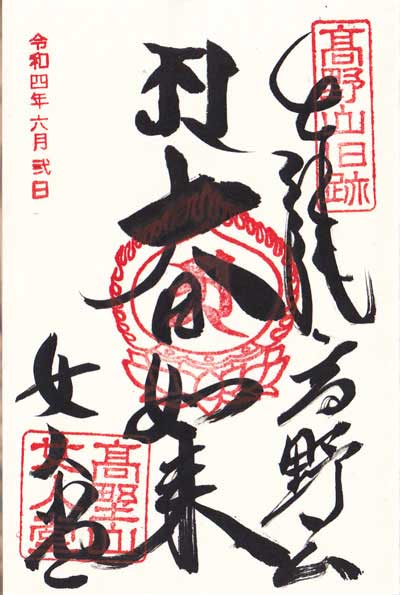 髙野山旧跡
奉拝 高野山
大日如来
女人堂
髙野山女人堂
令和四年六月弐日